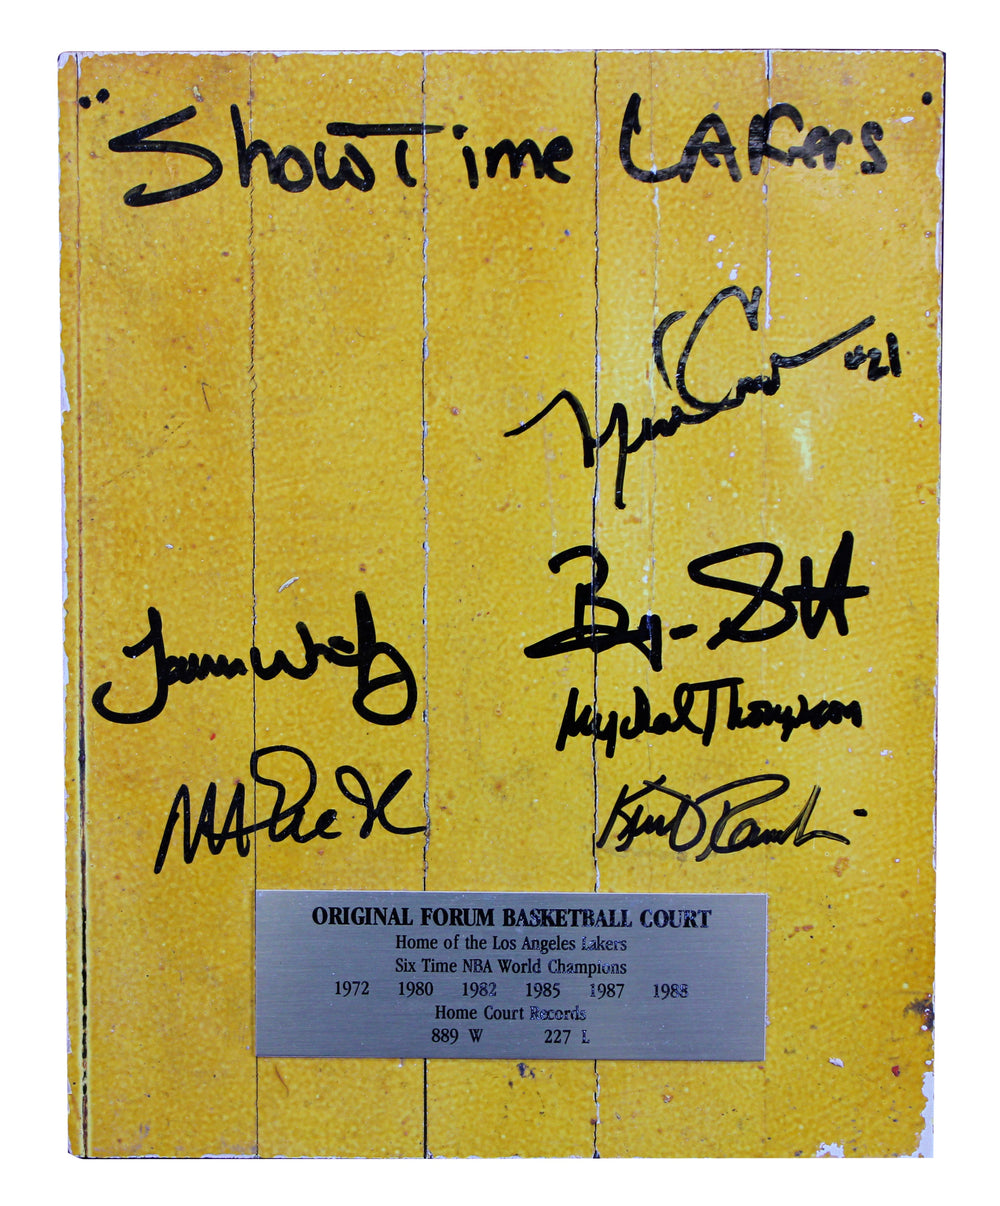 "ShowTime LAKers"
#21
Byron Scott
Mychal Thompson
ORIGINAL FORUM BASKETBALL COURT
Home of the Los Angeles Lakers
Six Time NBA World Champions
1972 1980 1982 1985 1987 1988
Home Court Records
889 W 227 L